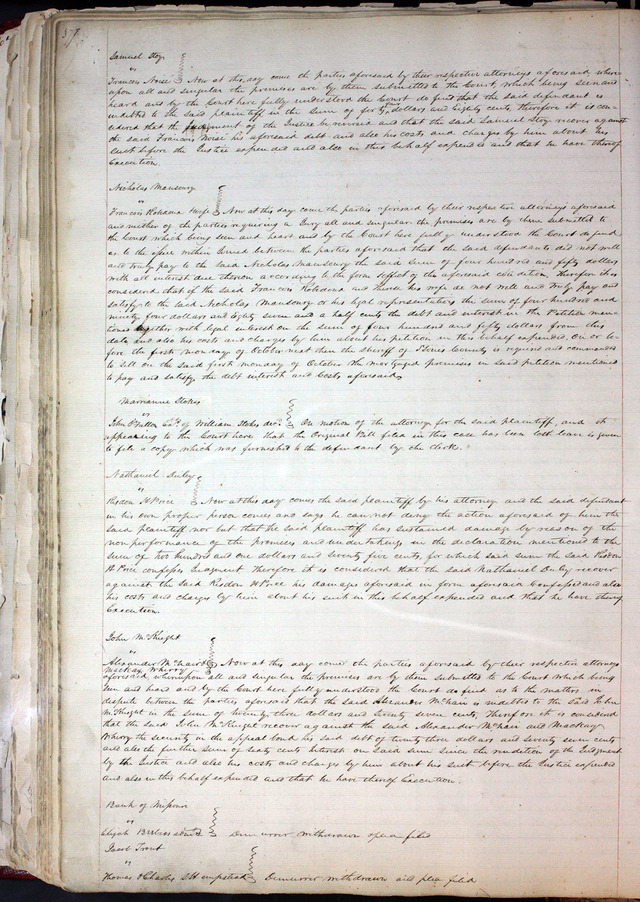 37
Samuel Story
"
Francois Noise Now at this day come the parties aforesaid by their respective attorneys aforesaid, where
upon all and singular the premises are by them submitted to the Court, which being seen and
heard and by the Court here fully understood the Court do find that the said defendant is
indebted to the said plaintiff in the sum of dollars and Eighty cents, therefore it is con
sidered that the Judgment of the Justice be reversed and that the said Samuel Story recover against
the said Francois Noise his aforesaid debt and also his costs and charges by him about his
suit before the Justice expended and also in this behalf expended and that he have thereof
Execution.
Nicholas Mansoury
"
Francois Robidoux & wife Now at this day come the parties aforesaid by their respective attorneys aforesaid
and neither of the parties requiring a Jury all and singular the premises are by them submitted to
the Court which being seen and heard and by the Court here fully understood the Court do find
as to the issue within Joined between the parties aforesaid that the said defendants did not well
and truly pay to the said Nicholas Mansoury the said sum of four hundred and fifty dollars
with all interest due thereon according to the form & effect of the aforesaid condition, Therefore it is
considered that if the said Francois Robidoux and his wife do not well and truly pay and
satisfy to the said Nicholas Mansoury or his legal representatives the sum of four hundred and
ninety four dollars and Eighty seven and a half cents the debt and interest in the Petition men
tioned together with legal interest on the sum of four hundred and fifty dollars from this
date and also his costs and charges by him about his petition in this behalf expended, On or be
fore the first monday of October next then the sheriff of St Louis County is required and commanded
to sell on the said first monday of October the mortgaged premises in said petition mentioned
to pay and satisfy the debt interest and Costs aforesaid.
Marrianne Stokes
"
John O'Fallon Exr. of William Stokes decd. On motion of the attorney for the said plaintiff, and it
appearing to the Court here that the Original Bill filed in this case has been lost leave is given
to file a copy which was furnished to the defendant by the clerk.
Nathaniel
"
Risdon H Price Now at this day comes the said plaintiff by his attorney and the said defendant
in his own proper person comes and says he can not deny the action aforesaid of him the
said plaintiff nor but that he said plaintiff has sustained damage by reason of the
non performance of the promises and undertakings in the declaration mentioned to the
sum of two hundred and one dollars and seventy five cents, for which said sum the said Risdon
H Price confesses Judgment Therefore it is considered that the said Nathaniel recover
against the said Risdon H Price his damages aforesaid in form aforesaid Confessed and also
his costs and charges by him about his suit in this behalf expended and that he have thereof
Execution.
John McKnight
"
Alexander McNair & Now at this day come the parties aforesaid by their respective attorneys
Mackay Wherry
aforesaid, whereupon all and singular the premises are by them submitted to the Court which being
seen and heard and by the Court here fully understood the Court do find as to the matters in
dispute between the parties aforesaid that the said Alexander McNair is indebted to the said John
McKnight in the sum of twenty three dollars and seventy seven cents, Therefore it is considered
that the said John McKnight recover against the said Alexander McNair and Mackay
Wherry the security in the appeal bond his said debt of twenty three dollars and seventy seven cents
and also the further sum of sixty cents Interest on said sum since the rendition of the Judgment
by the Justice and also his costs and charges by him about his suit before the Justice expended
and also in this behalf expended and that he have thereof Execution.
Bank of Missouri
"
Elijah Demurrer withdrawn & plea filed
Jacob Trout
"
Thomas & Charles S Hempstead Demurrer withdrawn and plea filed